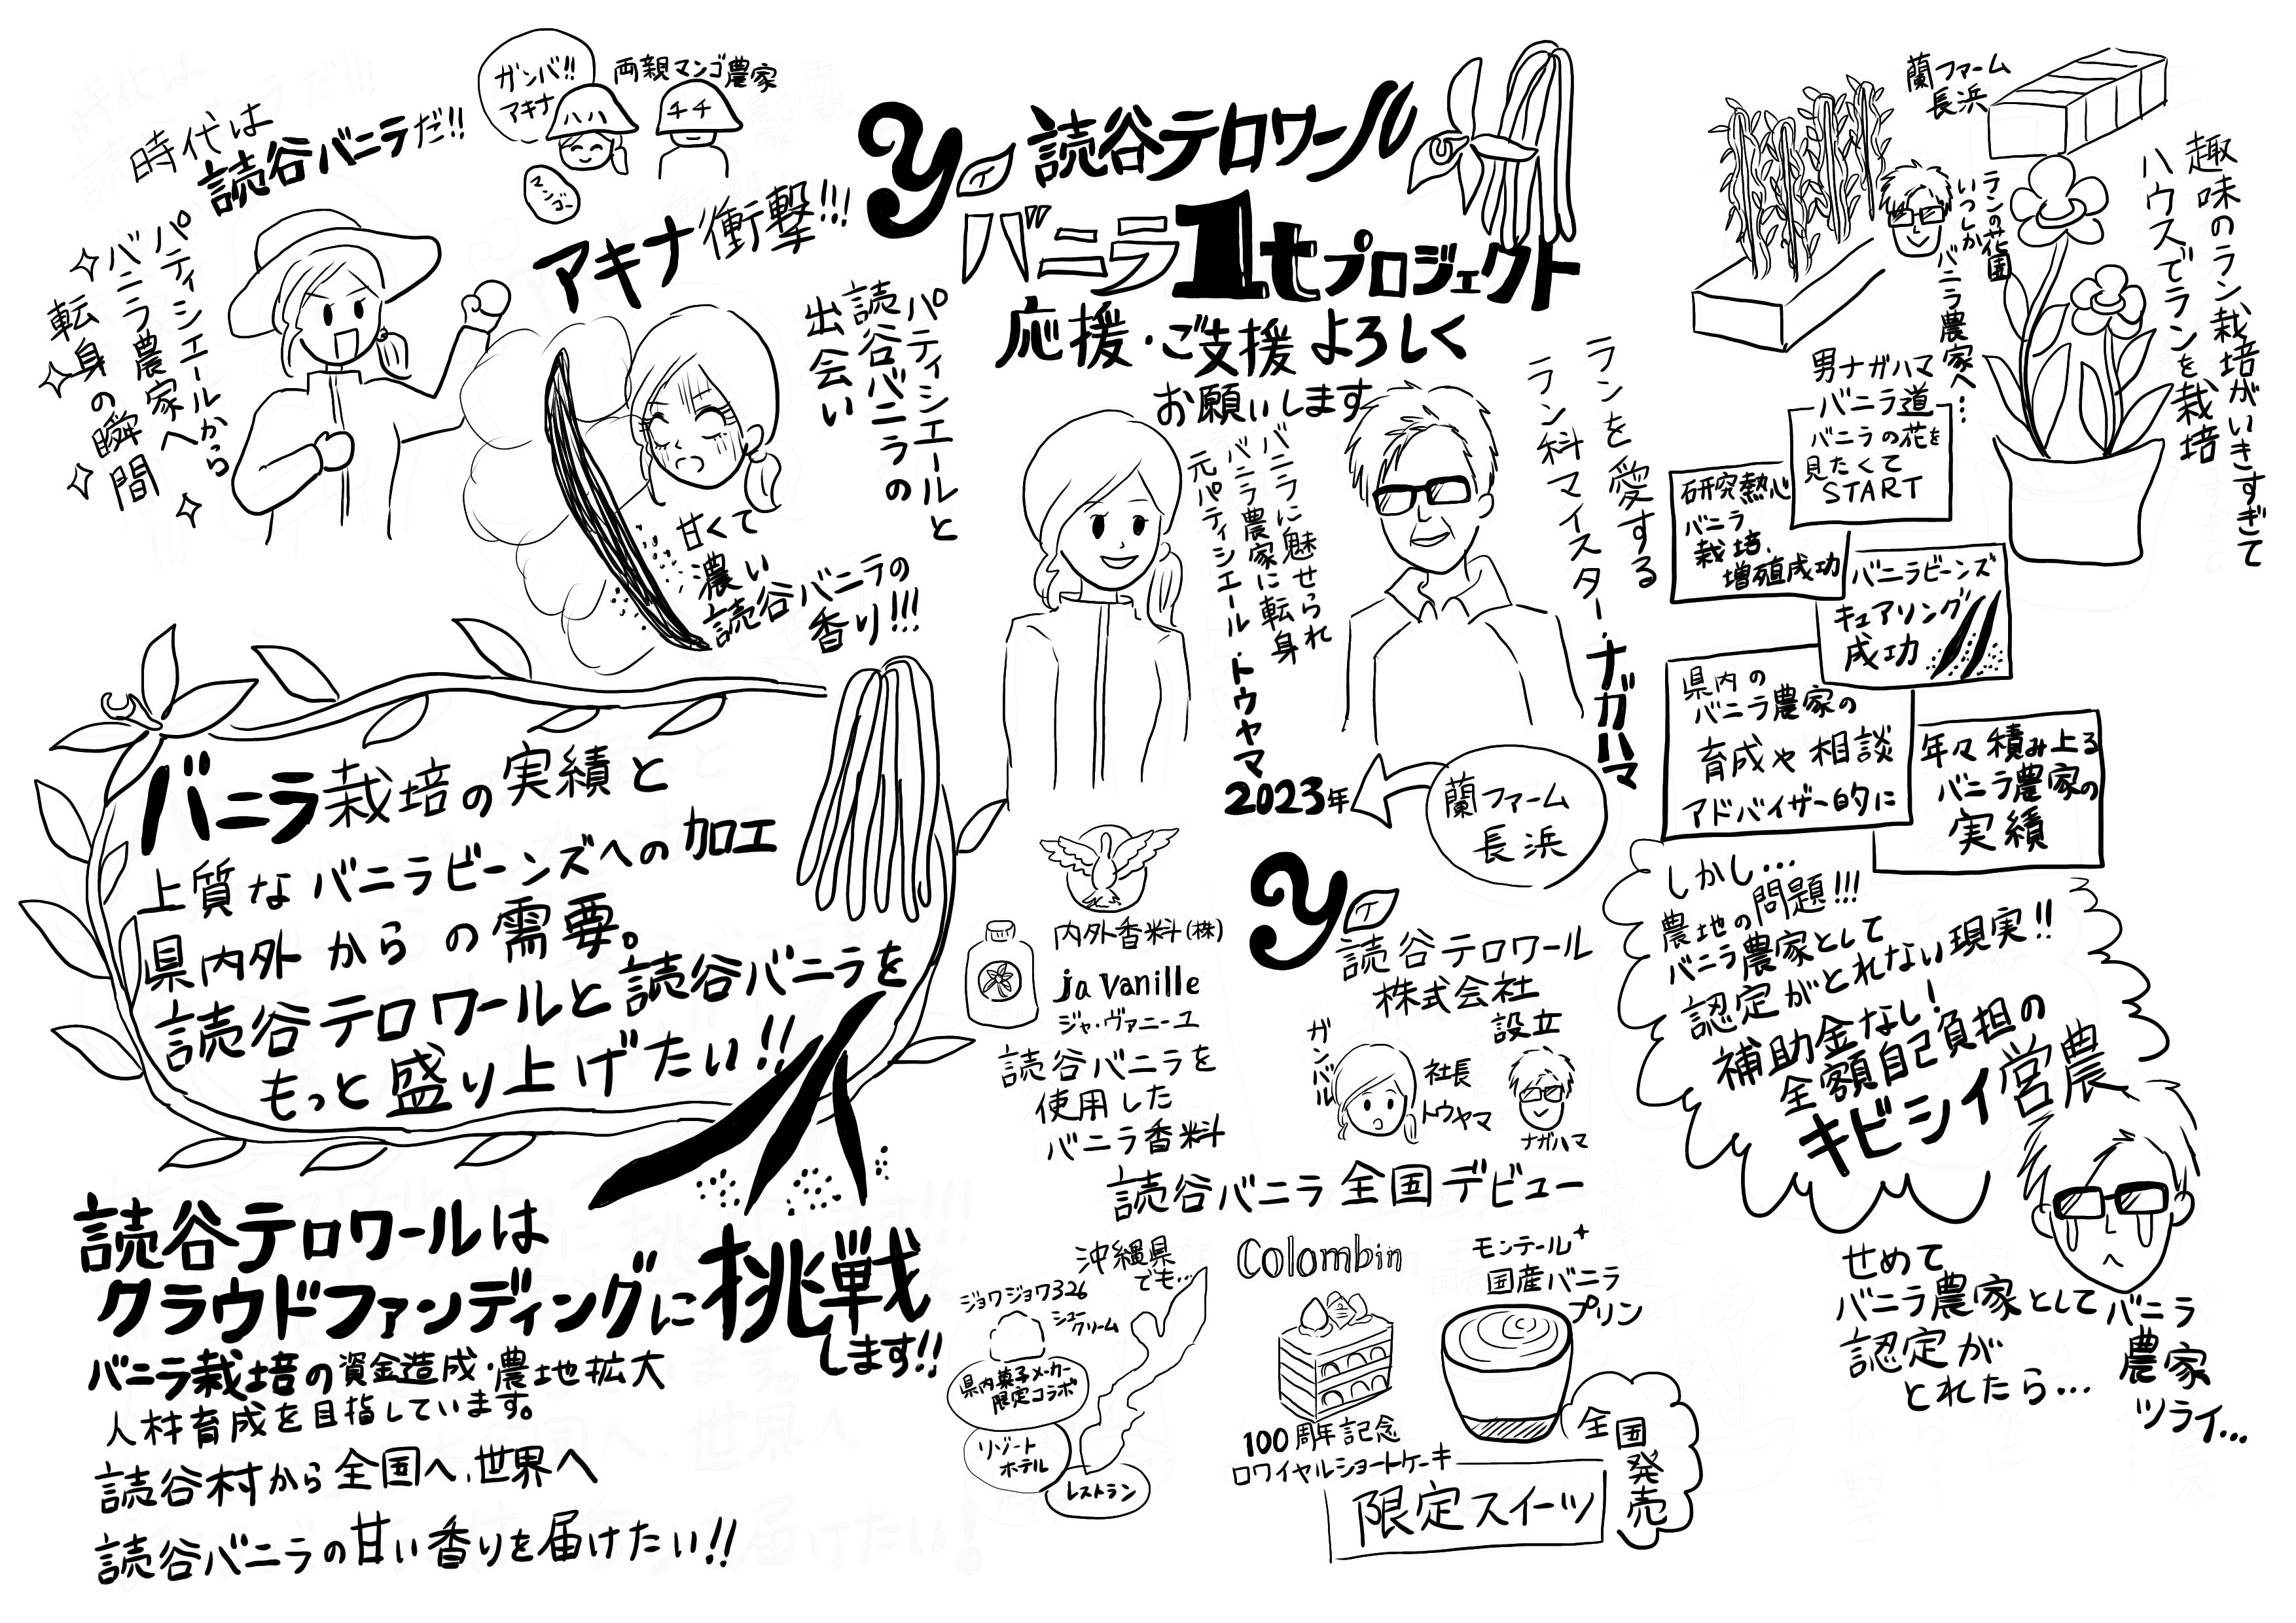 読谷テロワール
バニラ1tプロジェクト
応援・ご支援よろしく
お願いします
ランを愛する
ラン科マイスター・ナガハマ
バニラに魅せられ
バニラ農家に転身
元パティシエール・トウヤマ
蘭ファーム
長浜
趣味のラン栽培がいきすぎて
ハウスでランを栽培
ランの花園
いつしか
バニラ農家へ…
男ナガハマ
バニラ道
バニラの花を
見たくて
START
研究熱心
バニラ
栽培、
増殖成功
バニラビーンズ
キュアリング
成功
県内の
バニラ農家の
育成や相談
アドバイザー的に
年々積み上る
バニラ農家の
実績
しかし…
農地の問題!!!
バニラ農家として
認定がとれない現実!!
補助金なし!
全額自己負担の
キビシイ営農
せめて
バニラ農家として
認定が
とれたら…
バニラ
農家
ツライ…
蘭ファーム
長浜
2023年
y
テ
読谷テロワール
株式会社
設立
ガンバル
社長
トウヤマ
ナガハマ
内外香料(株)
ja vanille
ジャ・ヴァニーユ
読谷バニラを
使用した
バニラ香料
読谷バニラ全国デビュー
Colombin
100周年記念
ロワイヤルショートケーキ
モンテール+
国産バニラ
プリン
限定スイーツ
全国
発売
沖縄県
でも…
ジョワジョワ326
シュー
クリーム
県内菓子メーカー
限定コラボ
リゾート
ホテル
レストラン
ガンバ!!
アキナ
両親マンゴ農家
ハハ
チチ
マンゴー
アキナ衝撃!!!
パティシエールと
読谷バニラの
出会い
甘くて
濃い
読谷バニラの
香り!!!
時代は
読谷バニラだ!!
パティシエールから
バニラ農家へ
転身の瞬間
バニラ栽培の実績と
上質なバニラビーンズへの加工
県内外からの需要。
読谷テロワールと読谷バニラを
もっと盛り上げたい!!
読谷テロワールは
クラウドファンディングに挑戦
します!!
バニラ栽培の資金造成・農地拡大
人材育成を目指しています。
読谷村から全国へ、世界へ
読谷バニラの甘い香りを届けたい!!